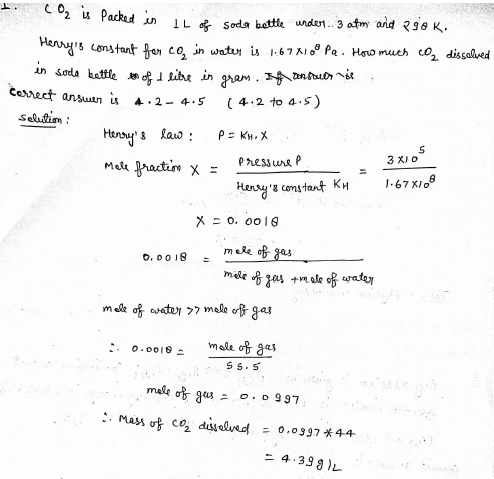 1. CO2 is Packed in 1L of soda bottle under.. 3 atm and 298 K.
Henry's constant for CO2 in water is 1.67 X10^8 Pa. How much CO2 dissolved
in soda bottle of 1 litre in gram.
Correct answer is 4.2 - 4.5 (4.2 to 4.5)
Solution:
Henry's law: P = KH.X
Mole fraction X = Pressure P / Henry's constant KH = 3X10^5 / 1.67X10^8
X = 0.0018
0.0018 = mole of gas / mole of gas + mole of water
mole of water >> mole of gas
∴ 0.0018 = mole of gas / 55.5
mole of gas = 0.0997
∴ Mass of CO2 dissolved = 0.0997*44
= 4.39 g/L